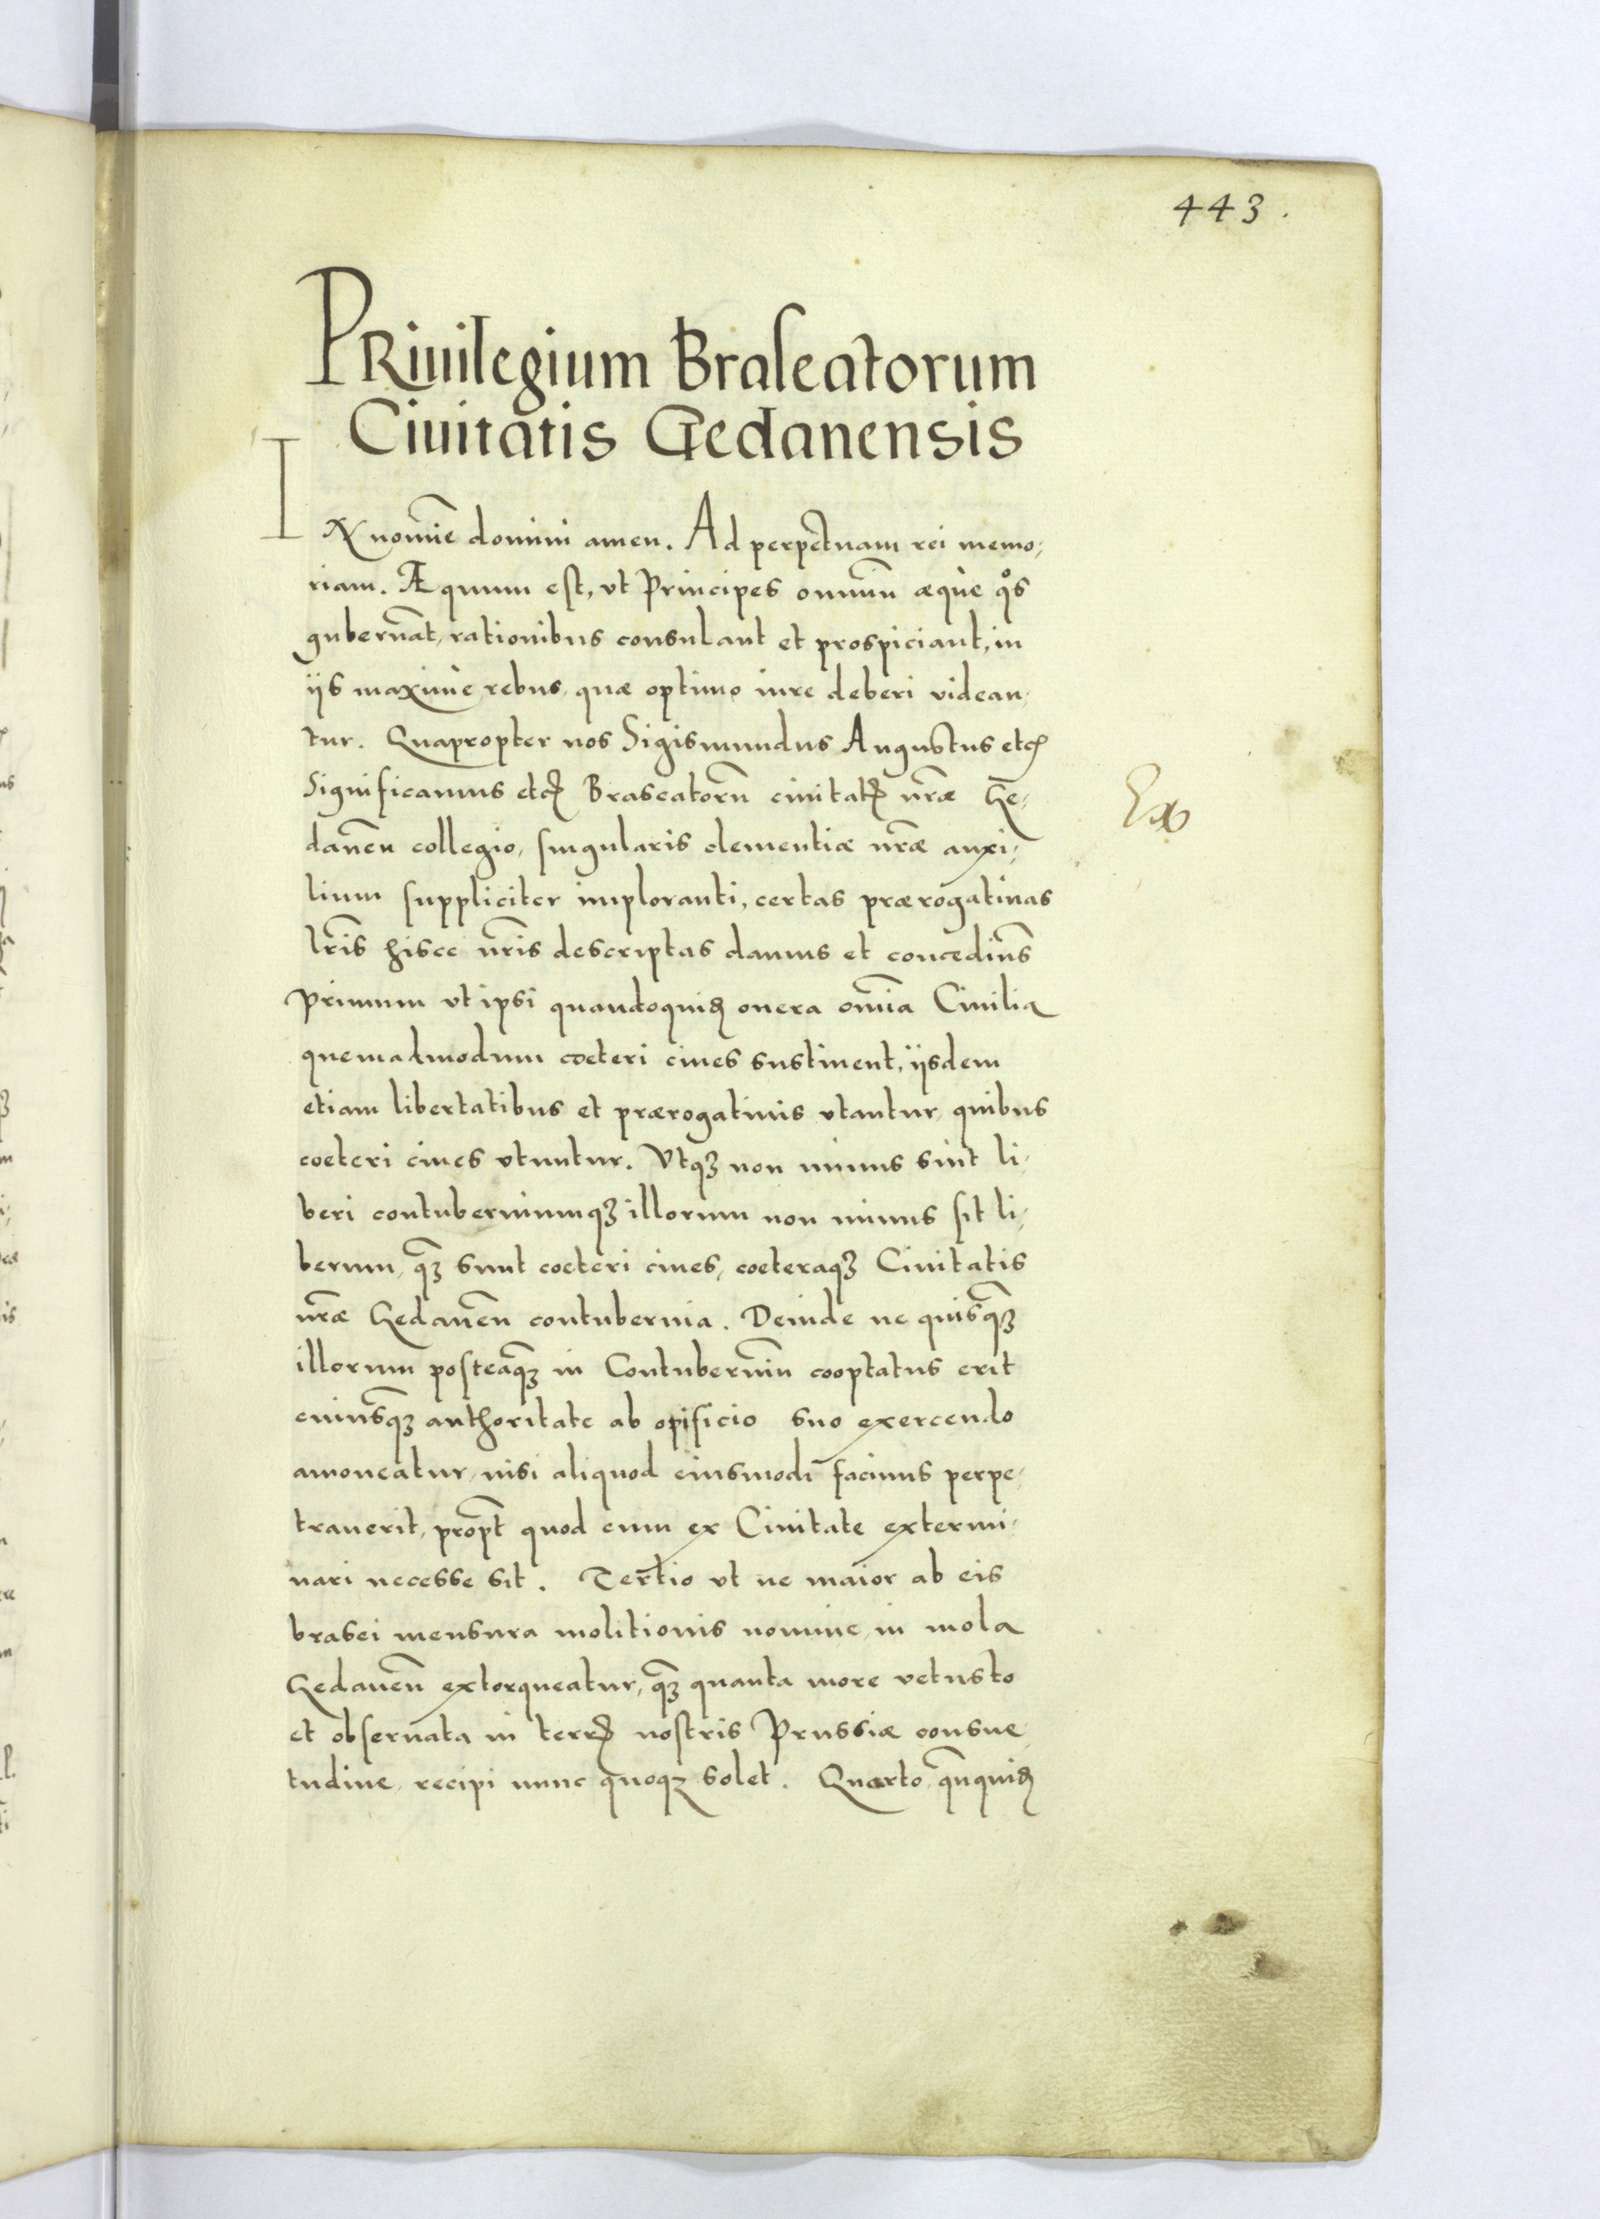 443.
PRiuilegium Braseatorum
Ciuitatis Gedanensis
IN nomīe domini amen. Ad perpetuam rei memo,
riam. Æquum est, vt Principes omniū æquè qͦs
gubernāt, rationibus consulant et prospiciant, in
ijs maximè rebus, quæ optimo iure deberi videan,
tur. Quapropter nos Sigismundus Augustus etcꝭ
Significamus etcꝭ Braseatorū ciuitatꝭ nr̄æ Ge,
danēn collegio, singularis clementiæ nr̄æ auxi,
lium suppliciter imploranti, certas prærogatiuas
lr̄is hisce nr̄is descriptas damus et concedim̄s
Primum vt ipsi quandoquiꝫ onera om̄ia Ciuilia
quemadmodum cœteri ciues sustinent, ijsdem
etiam libertatibus et prærogatiuis vtantur, quibus
coeteri ciues vtuntur. Vtqꝫ non minus sint li,
beri contuberniumqꝫ illorum non minus sit li,
berum, qͣꝫ sunt coeteri ciues, coeteraqꝫ Ciuitatis
nr̄æ Gedanēn contubernia. Deinde ne quisqͣꝫ
illorum posteaqͣꝫ in Contuberniū cooptatus erit
cuiusqͣꝫ authoritate ab opificio suo exercendo
amoueatur, nisi aliquod eiusmodi facinus perpe,
trauerit, prop̄t quod eum ex Ciuitate extermi,
nari necesse sit. Tertio vt ne maior ab eis
brasei mensura molitionis nomine, in mola
Gedanēn extorqueatur, qͣꝫ quanta more vetusto
et obseruata in terrꝭ nostris Prussiæ consue,
tudine, recipi nunc quoqꝫ solet. Quarto, qn̄quiꝫ
Ex